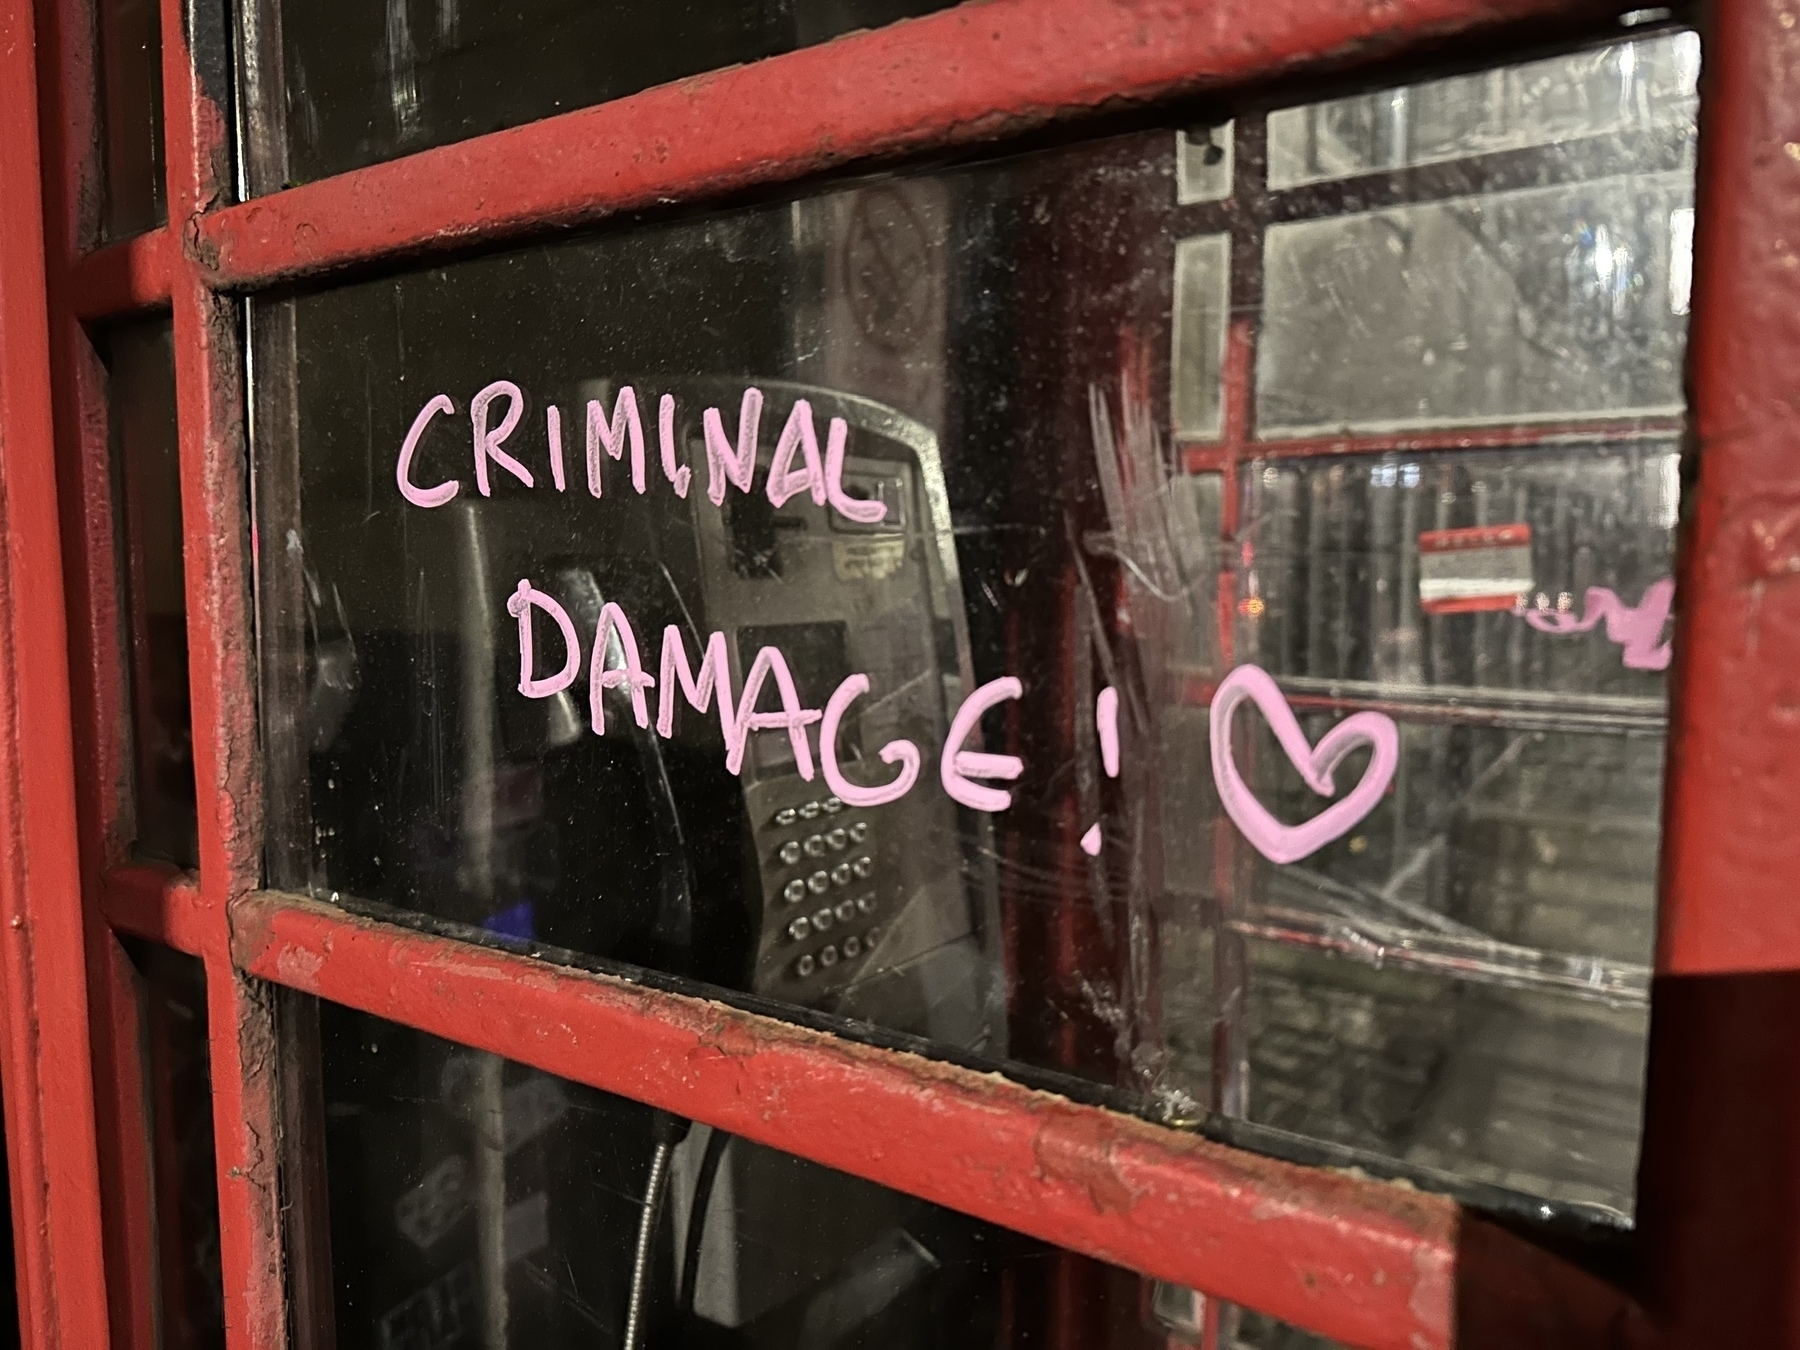 CRIMINAL
DAMAGE! ♡